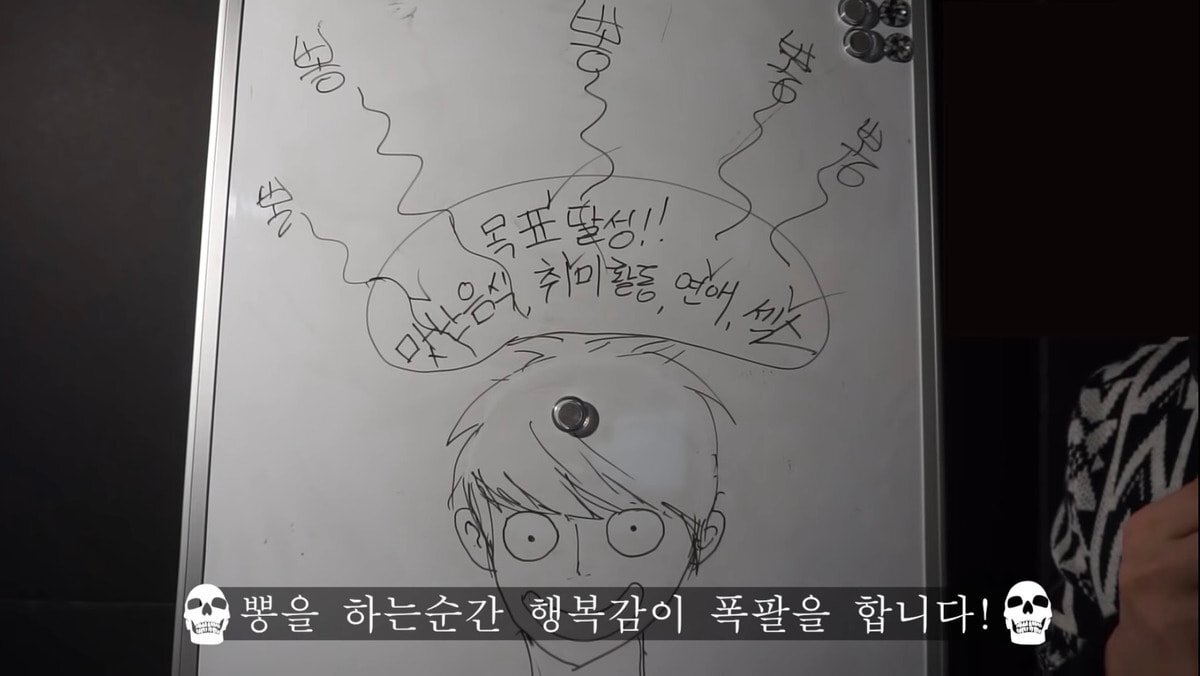 뽕
뽕
뽕
뽕
뽕
목표 달성!!
맛난음식, 취미활동, 연애, 섹스
뽕을 하는순간 행복감이 폭팔을 합니다!